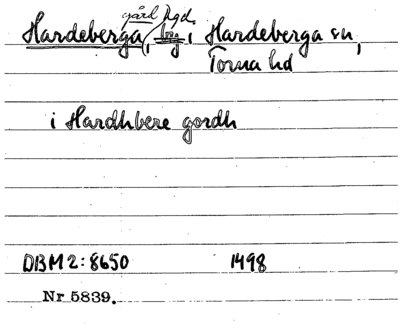 gård hgd.
Hardeberga, by, i Hardeberga sn,
Torna hd
i Hardhbere gordh
DBM 2:8650 1498
Nr 5839.